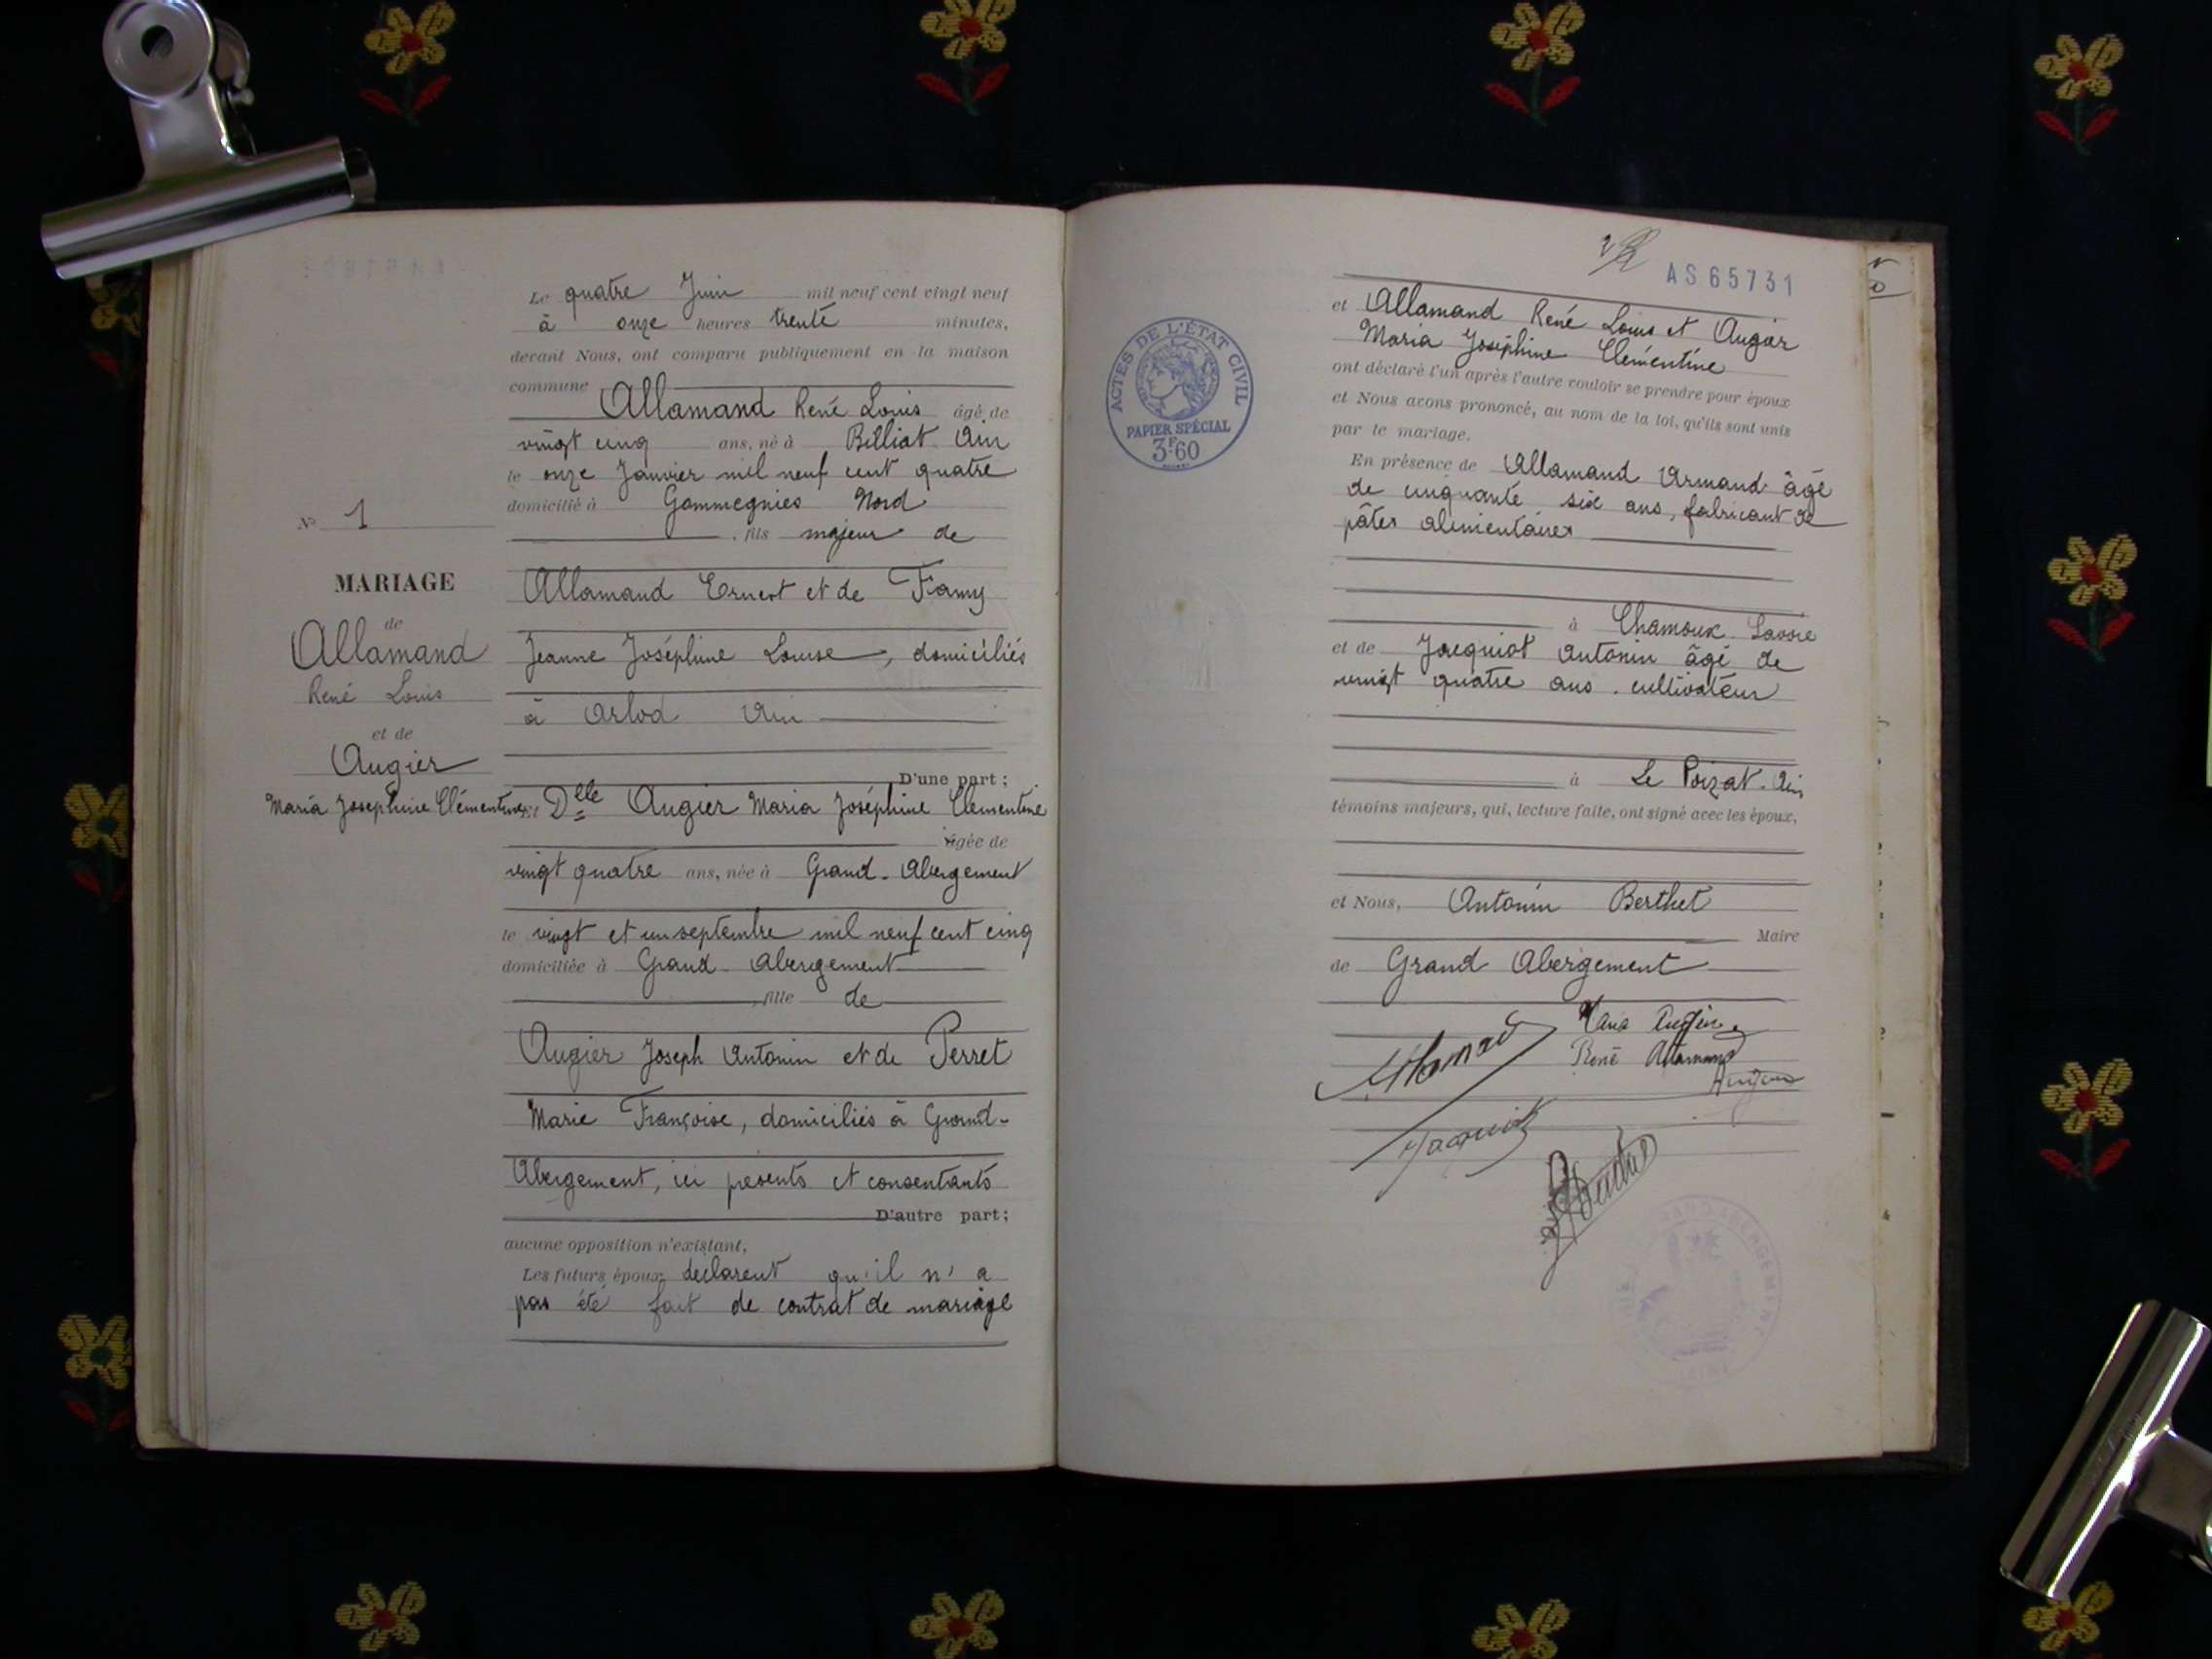 Le quatre Juin mil neuf cent vingt neuf
à onze heures trente minutes,
devant Nous, ont comparu publiquement en la maison
commune
Allamand René Louis âgé de
vingt cinq ans, né à Billiat Ain
le onze Janvier mil neuf cent quatre
domicilié à Gommegnies Nord
fils majeur de
Allamand Ernest et de Famy
Jeanne Joséphine Louise, domiciliés
à Arlod Ain
D'une part ;
Nº 1
MARIAGE
de
Allamand
René Louis
et de
Augier
Maria Joséphine Clémentine
Et Delle Augier Maria Joséphine Clementine
âgée de
vingt quatre ans, née à Grand-Abergement
le vingt et un septembre mil neuf cent cinq
domiciliée à Grand-Abergement
, fille de
Augier Joseph Antonin et de Perret
Marie Françoise, domiciliés à Grand-
Abergement, ici présents et consentants
D'autre part ;
aucune opposition n'existant,
Les futurs époux déclarent qu'il n'a
pas été fait de contrat de mariage
AS65731
ACTES DE L'ÉTAT CIVIL
PAPIER SPÉCIAL
3F.60
et Allamand René Louis et Augier
Maria Joséphine Clémentine
ont déclaré l'un après l'autre vouloir se prendre pour époux
et Nous avons prononcé, au nom de la loi, qu'ils sont unis
par le mariage.
En présence de Allamand Armand âgé
de cinquante six ans, fabricant de
pâtes alimentaires
à Chamoux Savoie
et de Jacquiot Antonin âgé de
vingt quatre ans. cultivateur
à Le Poizat. Ain
témoins majeurs, qui, lecture faite, ont signé avec les époux,
et Nous, Antonin Berthet
Maire
de Grand Abergement
Maria Augier
René Allamand
Augier